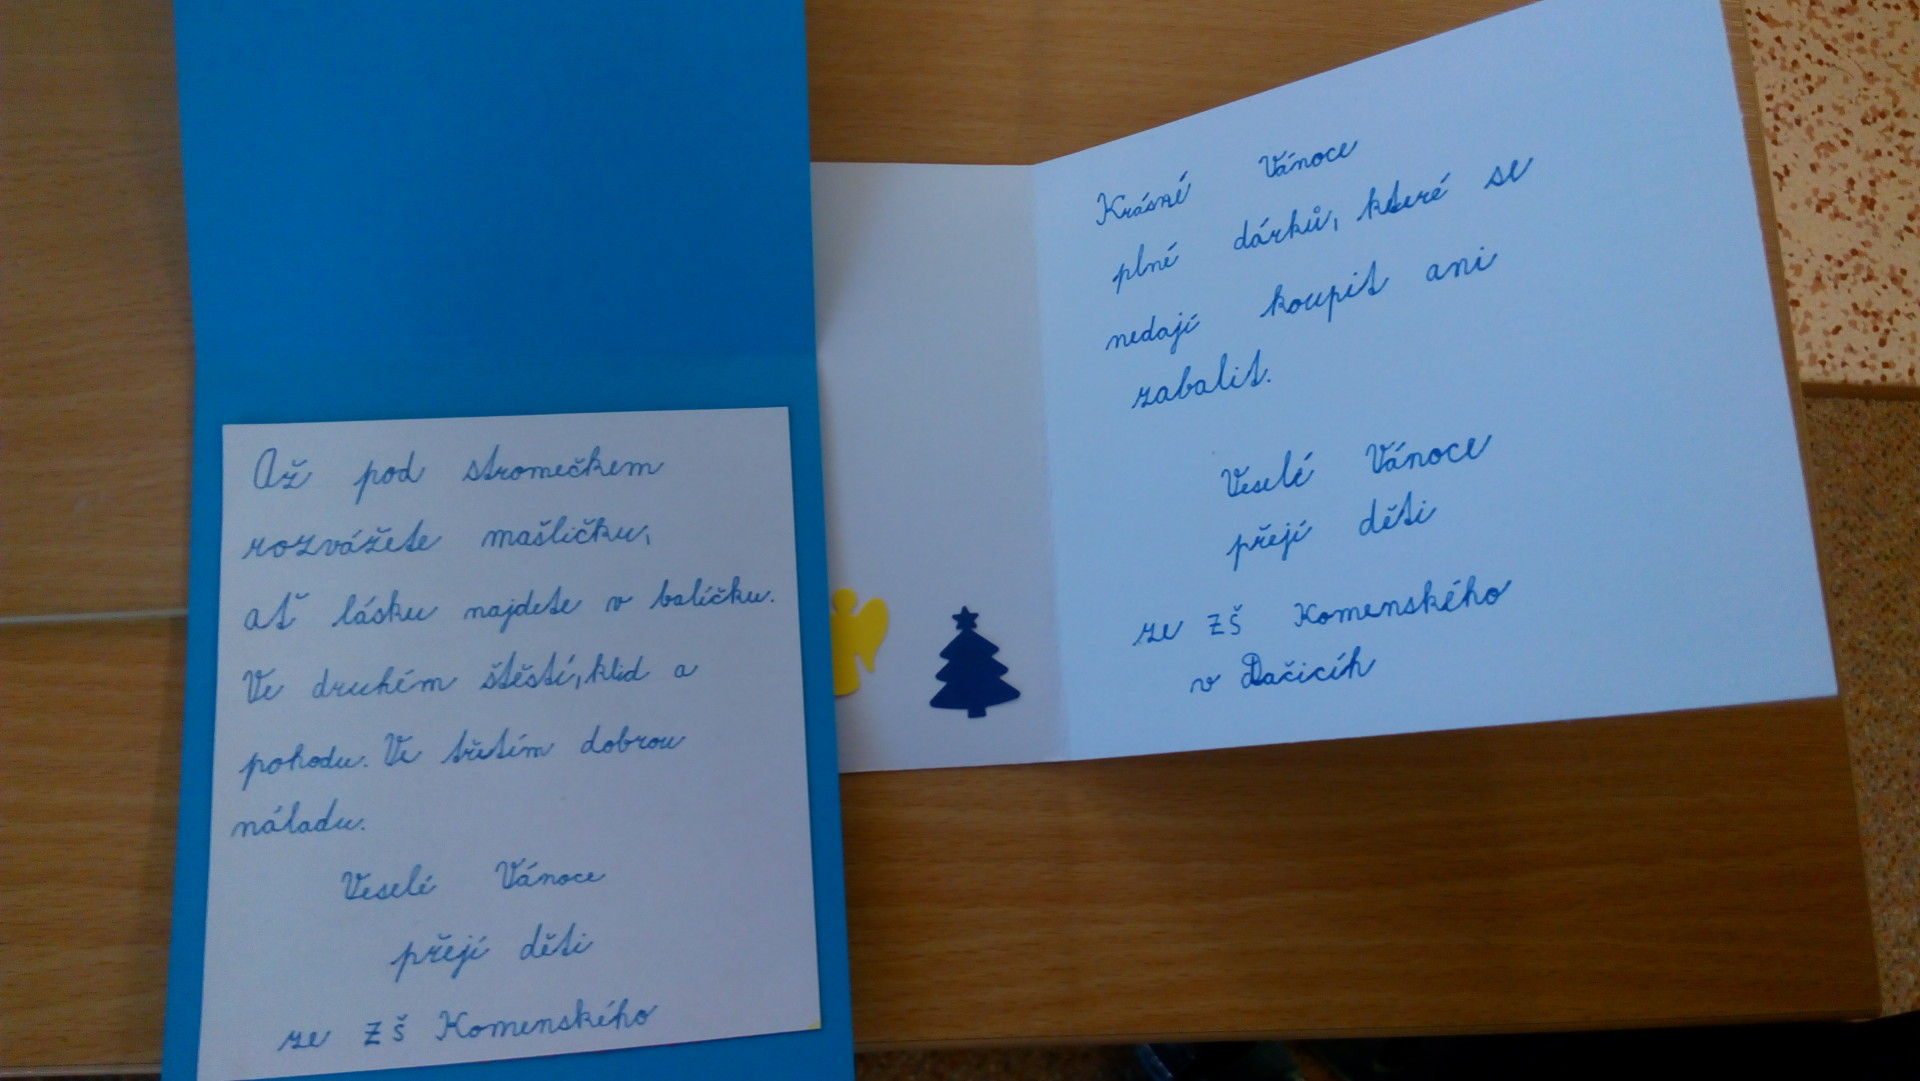 Až pod stromečkem
rozvážete mašličku,
ať lásku najdete v balíčku.
Ve druhém štěstí, klid a
pohodu. Ve třetím dobrou
náladu.
Veselé Vánoce
přejí děti
ze ZŠ Komenského
Krásné Vánoce
plné dárků, které se
nedají koupit ani
zabalit.
Veselé Vánoce
přejí děti
ze ZŠ Komenského
v Dačicíh